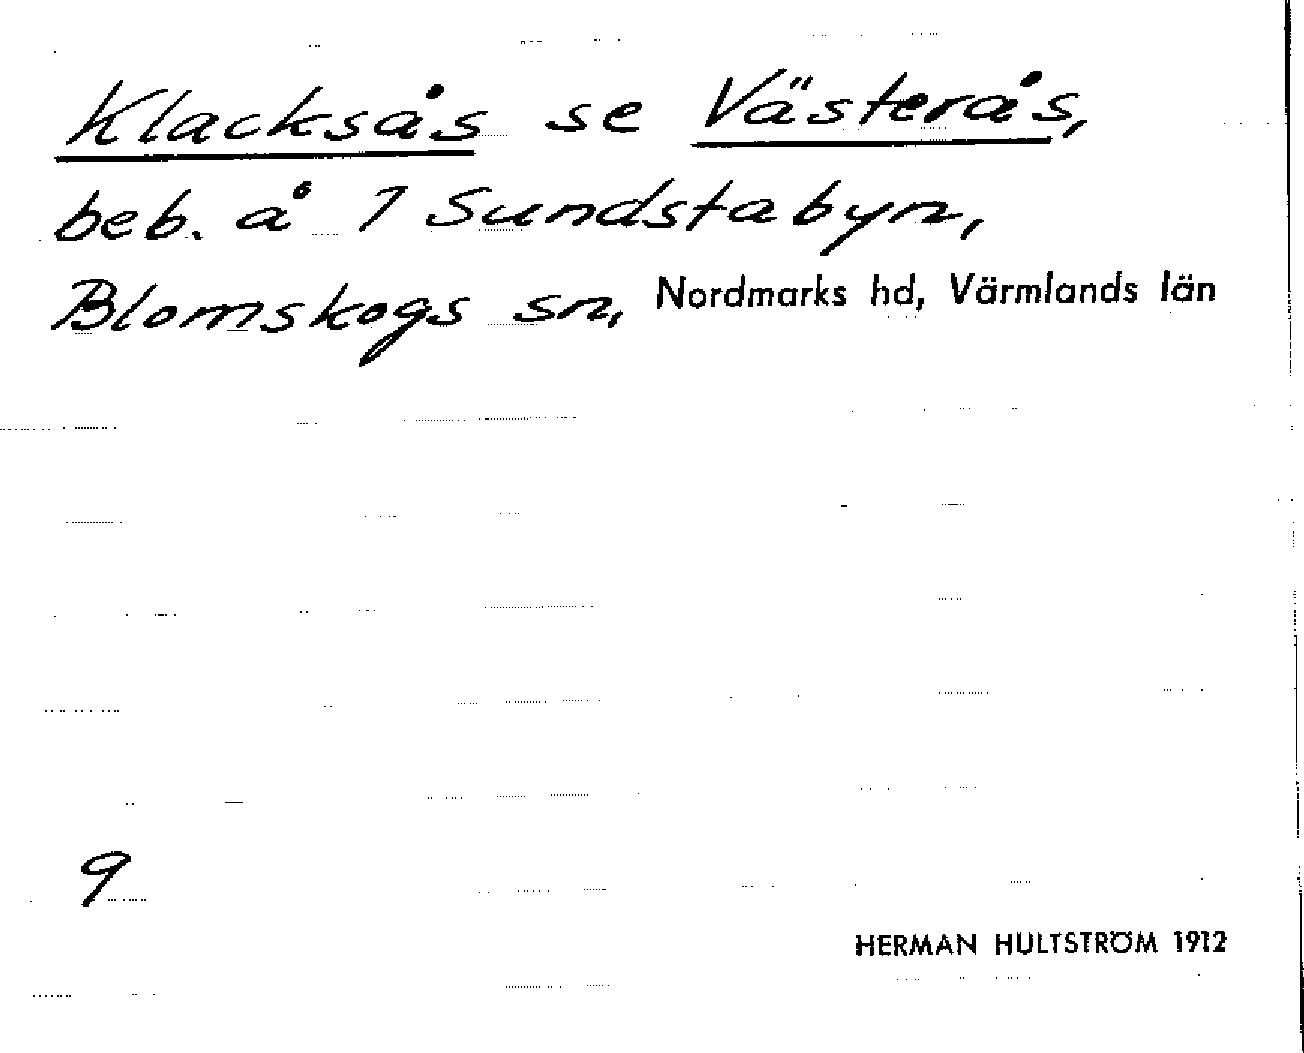 Klacksås se Västerås,
beb. å 1 Sundstabyn,
Blomskogs sn, Nordmarks hd, Värmlands län
9
HERMAN HULTSTRÖM 1912